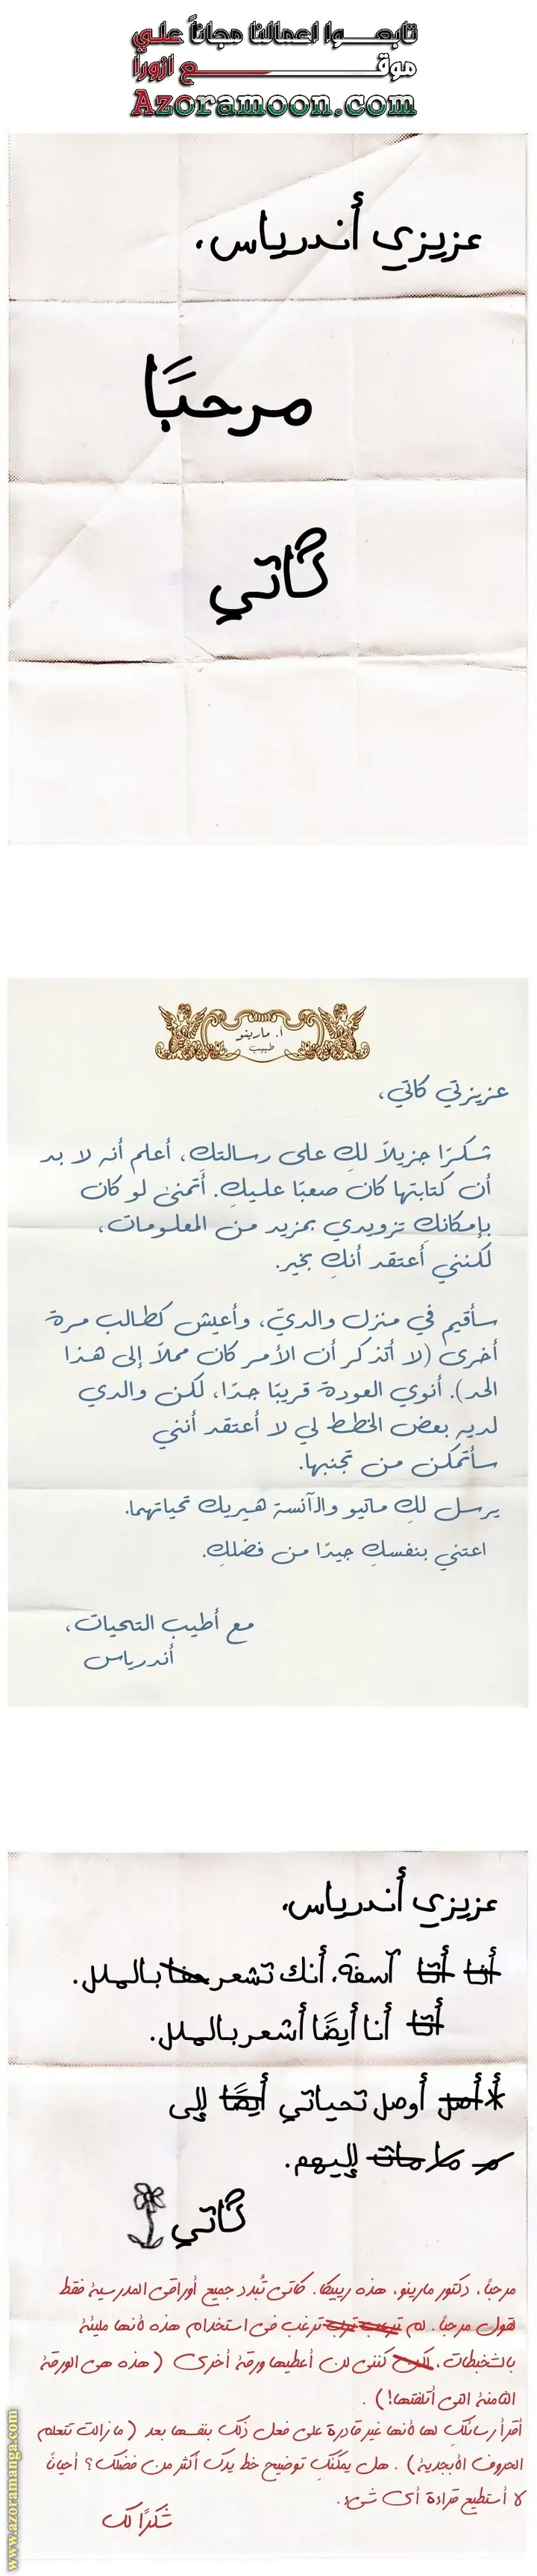 تابعـــوا اعمالنا مجاناً علي
موقـــــــــع ازورا
Azoramoon.com
عزيزي أندرياس،
مرحبًا
كاتي
أ. مارينو
طبيب
عزيزتي كاتي،
شكرًا جزيلاً لكِ على رسالتكِ، أعلم أنه لا بد
أن كتابتها كان صعبًا عليكِ. أتمنى لو كان
بإمكانكِ تزويدي بمزيد من المعلومات،
لكنني أعتقد أنكِ بخير.
سأقيم في منزل والديّ، وأعيش كطالب مرة
أخرى (لا أتذكر أن الأمر كان مملاً إلى هذا
الحد). أنوي العودة قريبًا جدًا، لكن والدي
لديه بعض الخطط لي لا أعتقد أنني
سأتمكن من تجنبها.
يرسل لكِ ماتيو والآنسة هيريك تحياتهما.
اعتني بنفسكِ جيدًا من فضلكِ.
مع أطيب التحيات،
أندرياس
عزيزي أندرياس،
أنا أنا آسفة، أنك تشعر حقا بالملل.
أنا أنا أيضًا أشعر بالملل.
أ أصل أوصل تحياتي أيضًا إلى
م ما مات إليهم.
كاتي
مرحبًا، دكتور مارينو، هذه ريبيكا. كاتي تُبدد جميع أوراقي المدرسية فقط
لقول مرحبًا. لم ترغب ترب ترغب في استخدام هذه لأنها مليئة
بالشخبطات، لكن كنني لن أعطيها ورقة أخرى (هذه هي الورقة
الثامنة التي أتلفتها!).
أقرأ رسائلكِ لها لأنها غير قادرة على فعل ذلك بنفسها بعد (ما زالت تتعلم
الحروف الأبجدية). هل يمكنك توضيح خط يدك أكثر من فضلك؟ أحيانًا
لا أستطيع قراءة أي شيء.
شكرًا لك
www.azoramanga.com